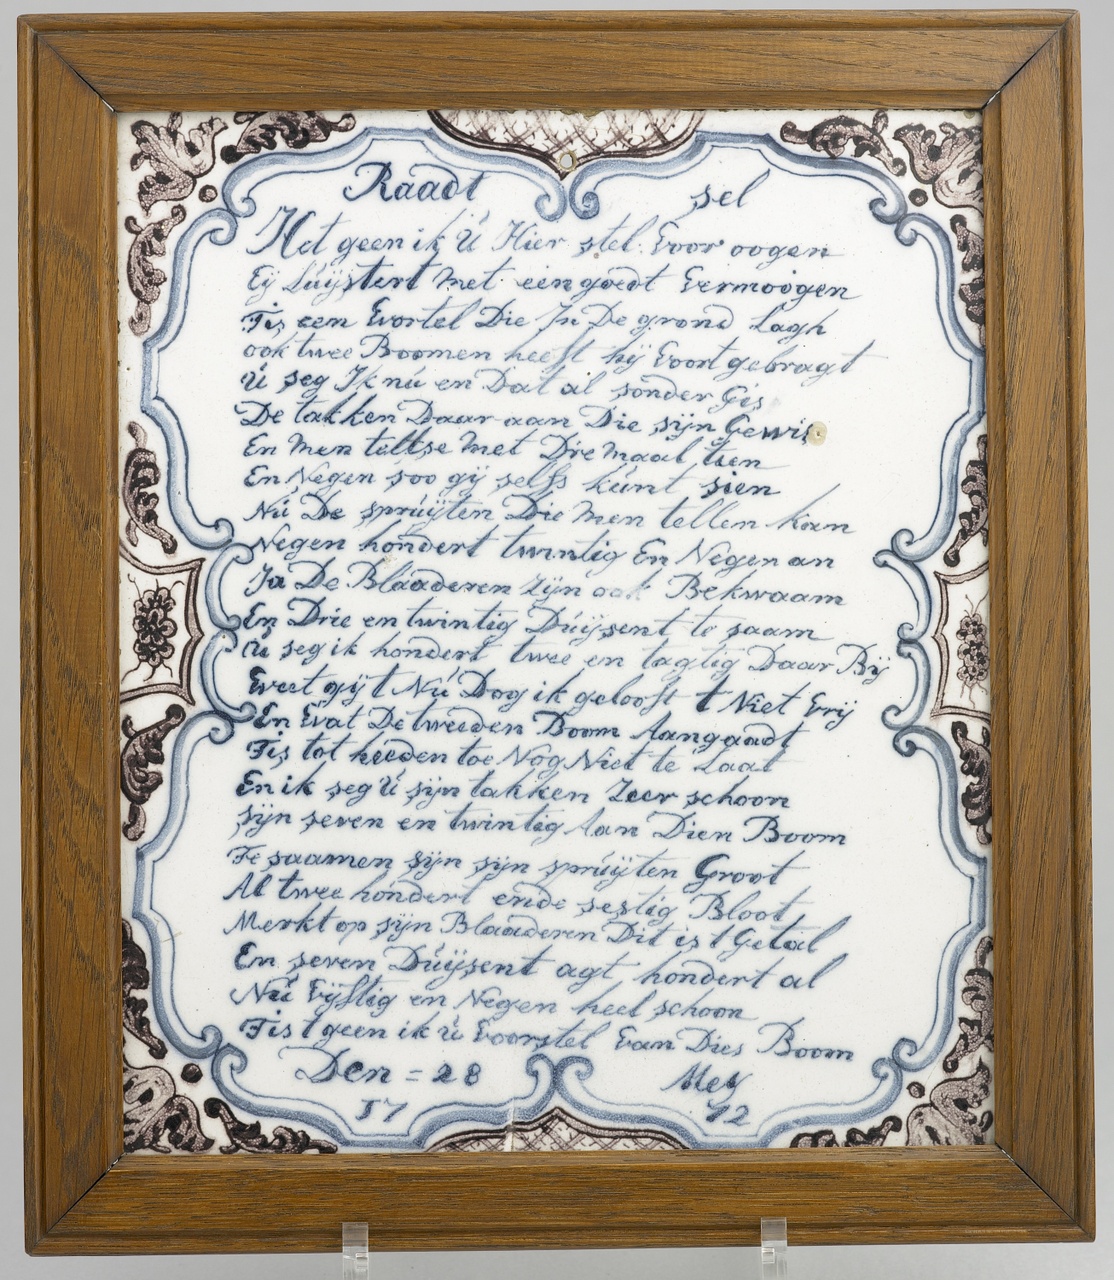 Raadt sel
Het geen ik Ú Hier stel voor oogen
Eÿ Lúÿstert Met een goedt vermoogen
Tis een wortel Die In De grond Lagh
ook twee Boomen heeft hÿ voort gebragt
Ú seg Ik nú en Dat al sonder Gis
De takken Daar aan Die sÿn Gewis
En Men teltse Met Drie Maal tien
En Negen soo gÿ selfs kúnt sien
Nú De sprúÿten Die Men tellen kan
Negen hondert twintig En Negen an
Ja De Blaaderen Zÿn ook Bekwaam
En Drie en twintig Dúÿsent te saam
Ú seg ik hondert twee en tagtig Daar Bÿ
Weet gÿ t Nú Dog ik gelooft t Niet Vrÿ
En Wat De tweeden Boom Aangaadt
Tis tot heeden toe Nog Niet te Laat
En ik seg Ú sÿn takken Zeer schoon
sÿn seven en twintig Aan Dien Boom
Te saamen sÿn sÿn sprúÿten Groot
Al twee hondert ende sestig Bloot
Merkt op sÿn Blaaderen Dit is t Getal
En seven Dúÿsent agt hondert al
Nú Vÿftig en Negen heel schoon
Tis t geen ik ú voorstel van Dies Boom
Den = 28 Meÿ
17 72